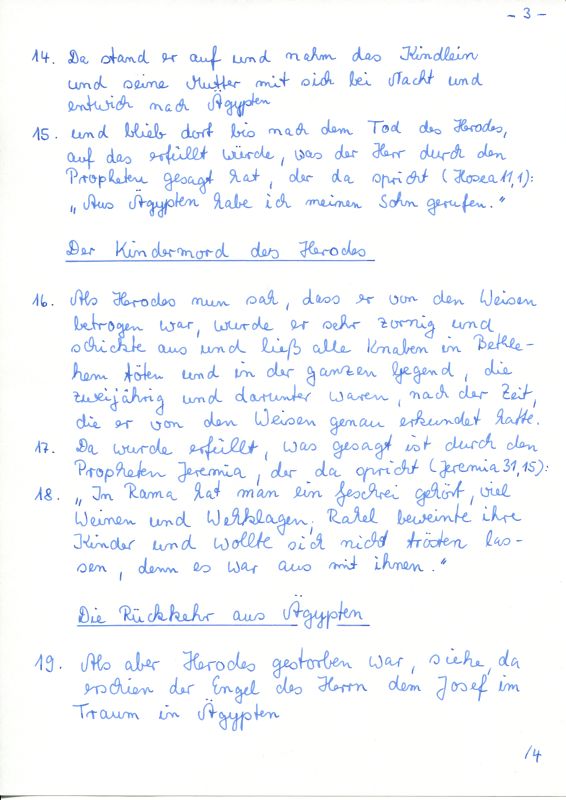 - 3 -
14. Da stand er auf und nahm das Kindlein
und seine Mutter mit sich bei Nacht und
entwich nach Ägypten
15. und blieb dort bis nach dem Tod des Herodes,
auf das erfüllt würde, was der Herr durch den
Propheten gesagt hat, der da spricht (Hosea 11,1):
„Aus Ägypten habe ich meinen Sohn gerufen."
Der Kindermord des Herodes
16. Als Herodes nun sah, dass er von den Weisen
betrogen war, wurde er sehr zornig und
schickte aus und ließ alle Knaben in Bethle-
hem töten und in der ganzen Gegend, die
zweijährig und darunter waren, nach der Zeit,
die er von den Weisen genau erkundet hatte.
17. Da wurde erfüllt, was gesagt ist durch den
Propheten Jeremia, der da spricht (Jeremia 31,15):
18. „In Rama hat man ein Geschrei gehört, viel
Weinen und Wehklagen; Rahel beweinte ihre
Kinder und wollte sich nicht trösten las-
sen, denn es war aus mit ihnen."
Die Rückkehr aus Ägypten
19. Als aber Herodes gestorben war, siehe, da
erschien der Engel des Herrn dem Josef im
Traum in Ägypten
/4